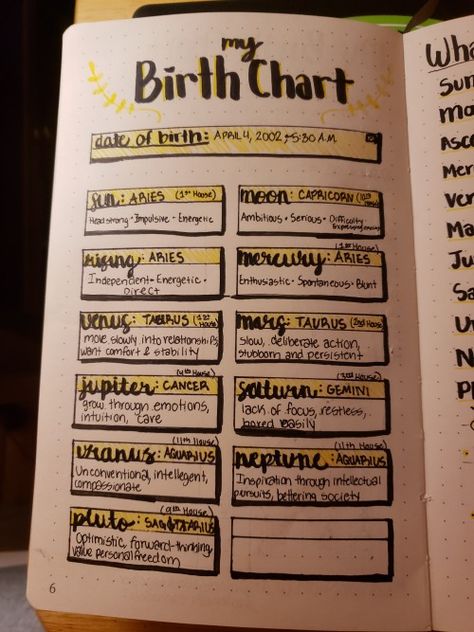 my
Birth Chart
date of birth: APRIL 4, 2002 5:30 A.M.
sun: ARIES (1st House)
Headstrong • Impulsive • Energetic
moon: CAPRICORN (10th House)
Ambitious • Serious • Difficulty
Expressing
rising: ARIES
Independent • Energetic •
Direct
(1st House)
mercury: ARIES
Enthusiastic • Spontaneous • Blunt
venus: TAURUS (1st House)
move slowly into relationships,
want comfort & stability
mars: TAURUS (2nd House)
slow, deliberate action,
stubborn and persistent
(4th House)
jupiter: CANCER
grow through emotions,
intuition, care
(3rd House)
saturn: GEMINI
lack of focus, restless,
bored easily
(11th House)
uranus: AQUARIUS
Unconventional, intellegent,
compassionate
(11th House)
neptune: AQUARIUS
Inspiration through intellectual
pursuits, bettering society
(9th House)
pluto: SAGITTARIUS
Optimistic, forward-thinking
value personal freedom
6
Wha
Sun
Mo
Asc
Mer
Ve
Ma
Ju
Sa
Ur
N
Pl